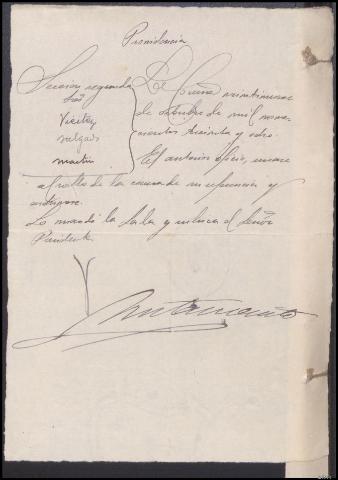 Providencia
Sección segunda
Sres
Vieitez
Salgado
Martin
La Coruña veintinueve
de octubre de mil nove-
cientos treinta y ocho.
El anterior oficio, únase
al rollo de la causa de su referencia y
archívese.
Lo mandó la Sala y rubrica el Señor
Presidente